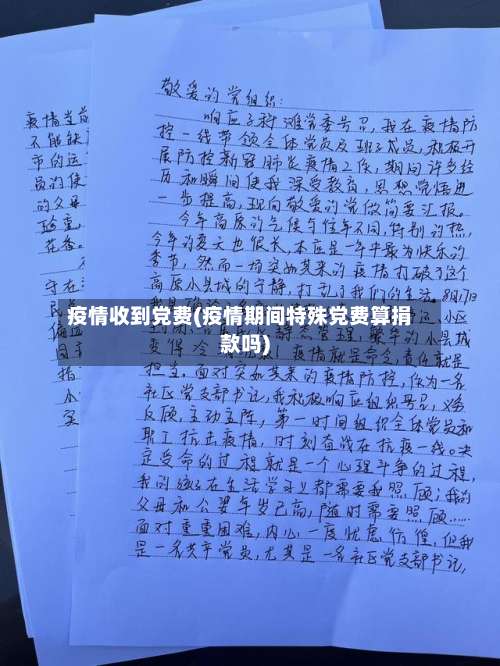 敬爱的党组织:
响应子科滩党委号召,我在疫情防
控一线带领全体党员及班子成员,积极开
展防控新冠肺炎疫情工作,期间许多经
历和瞬间使我深受教育,思想觉悟进
一步提高,现向敬爱的党做简要汇报。
今年高原的气候与往年不同,特别的热,
今年的夏天也很长,本应是一年中最为快乐的
季节,然而一场突如其来的疫情打破了这个
高原小县城的宁静,打乱了我们的生活。8月7日
疫情收到党费(疫情期间特殊党费算捐
款吗)
疫情就是命令,责任就是
担当。面对突如其来的疫情防控,作为一名
社区党支部书记,我积极响应组织号召,义务
反顾,主动主阵,第一时间组织全体党员和
职工抗击疫情,时刻奋战在抗疫一线。决
定受命的过程就是一个心理斗争的过程,
我的孩子在生活学习上都需要我照顾;我的
父母和公婆年岁已高,随时需要照顾……
面对重重困难,内心一度忧虑彷徨,但我
是一名共产党员,尤其是一名社区党支部书记,